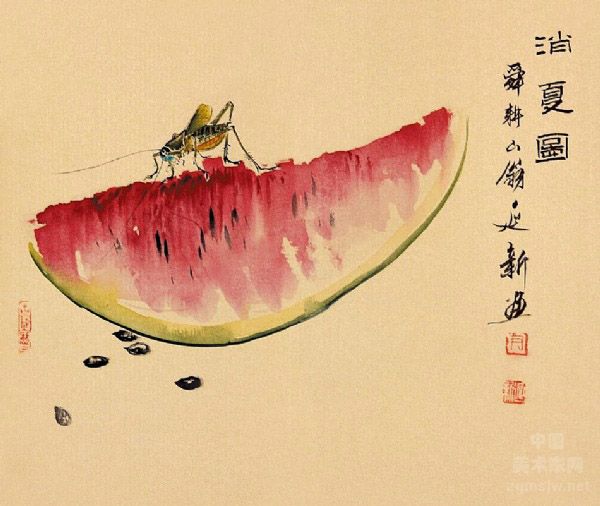 消夏圖
舜耕山翁延新畫
中国
美术家网
zgmsjw.net